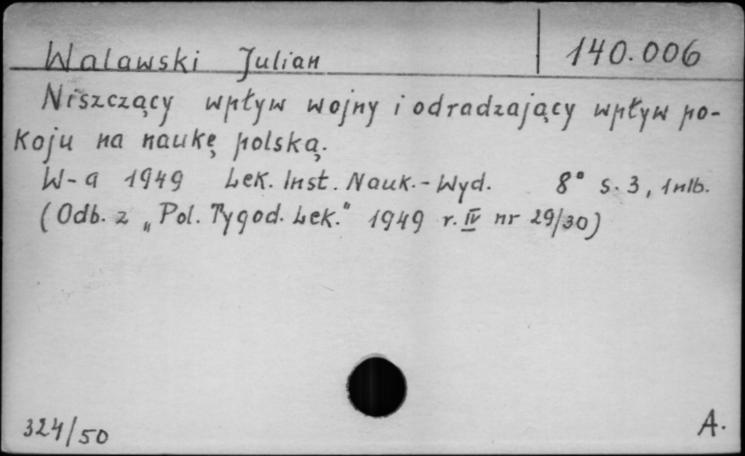 Walawski Julian 140.006
Niszczący wpływ wojny i odradzający wpływ po-
koju na naukę polską.
W-a 1949 Lek. Inst. Nauk.-Wyd. 8° s. 3, 1 nlb.
(Odb. z „Pol. Tygod. Lek." 1949 r. IV nr 29/30)
324/50 A.